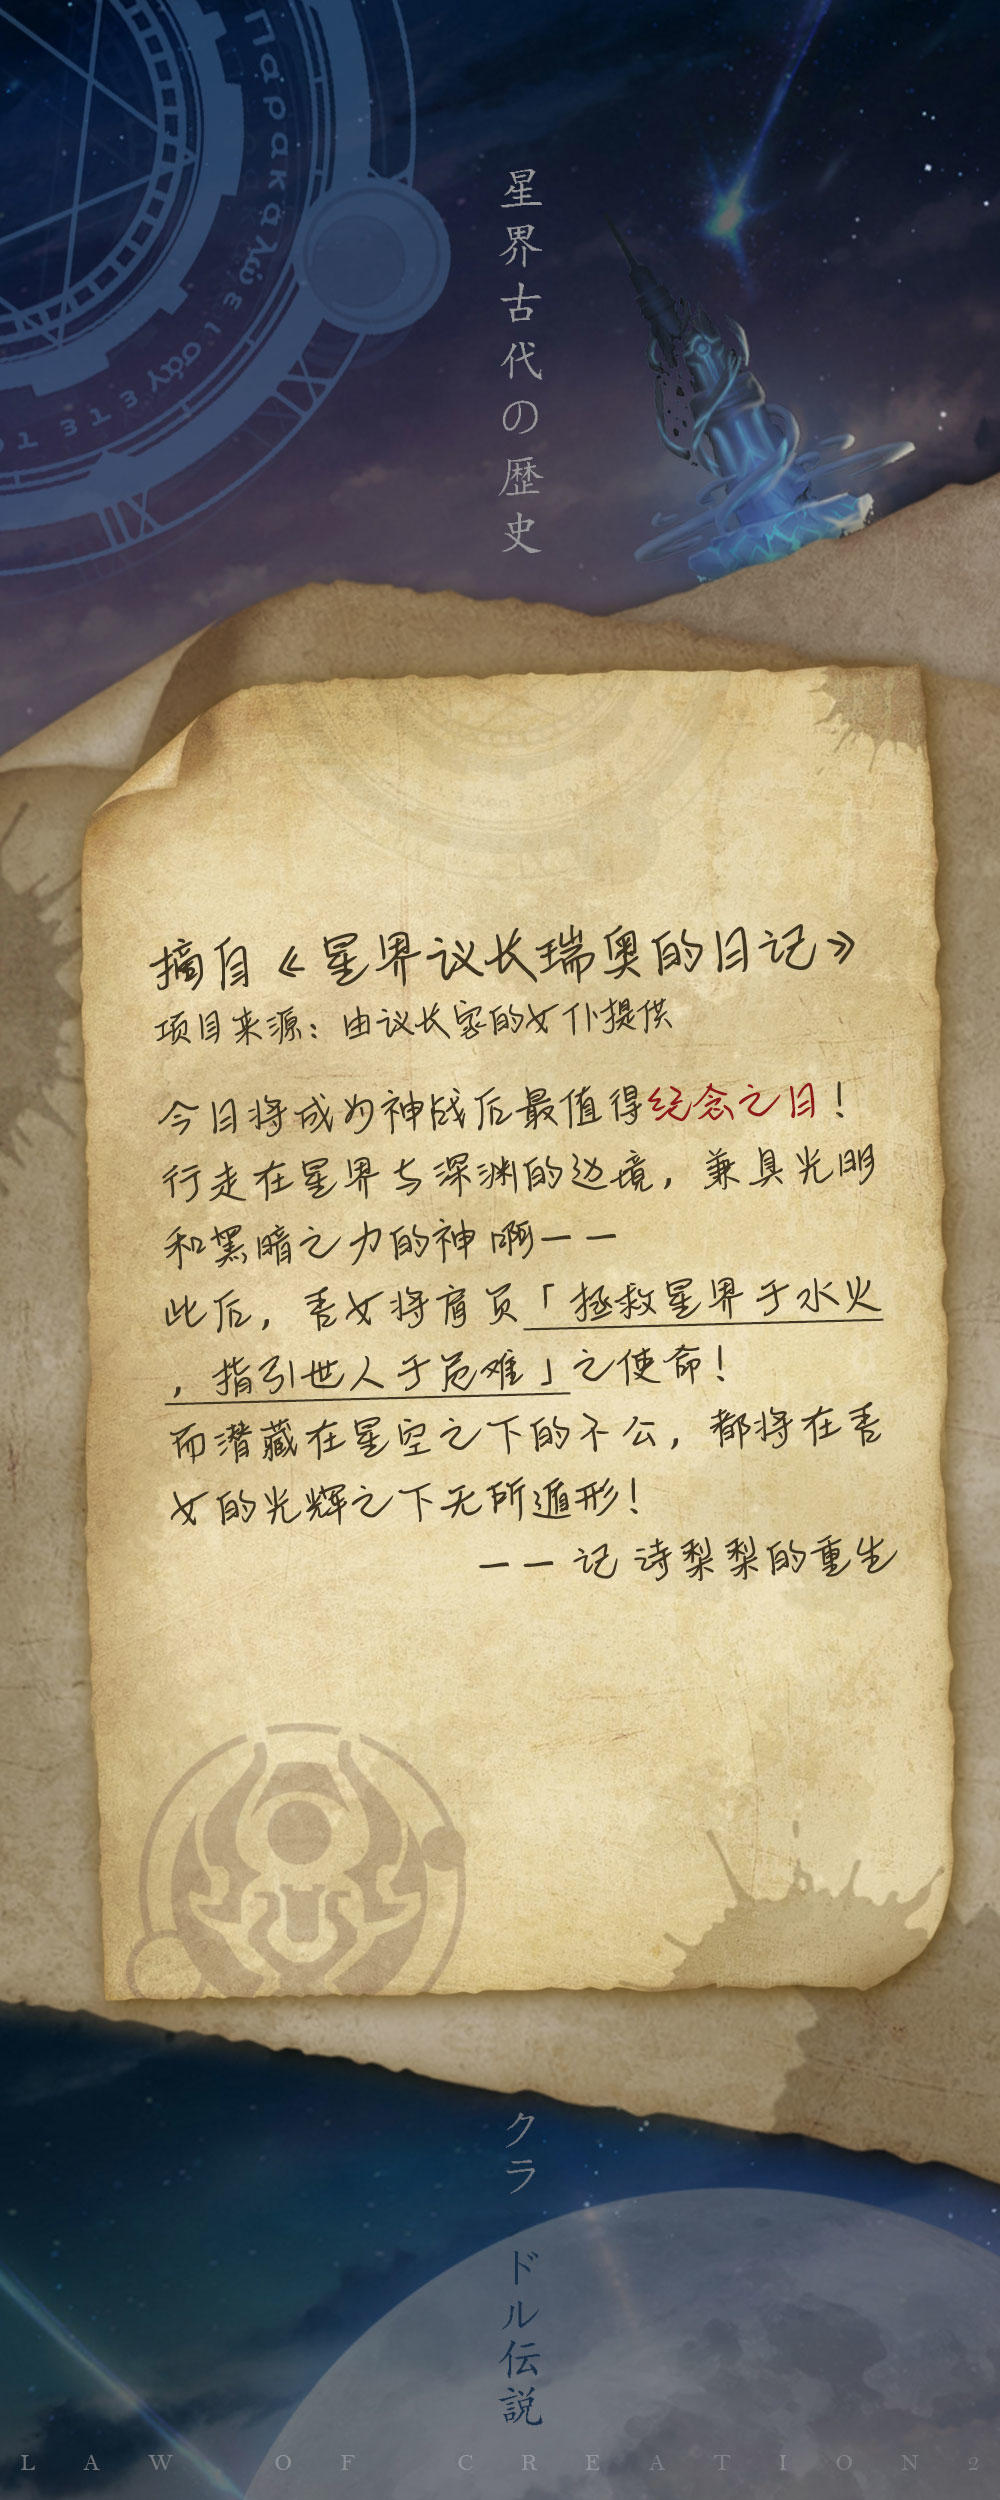 星界古代の歴史
摘自《星界议长瑞奥的日记》
项目来源：由议长家的女仆提供
今日将成为神战后最值得纪念之日！
行走在星界与深渊的边境，兼具光明
和黑暗之力的神啊——
此后，吾女将肩负「拯救星界于水火
，指引世人于危难」之使命！
而潜藏在星空之下的不公，都将在吾
女的光辉之下无所遁形！
——记 诗梨梨的重生
クラ ドル伝説
LAW OF CREATION2